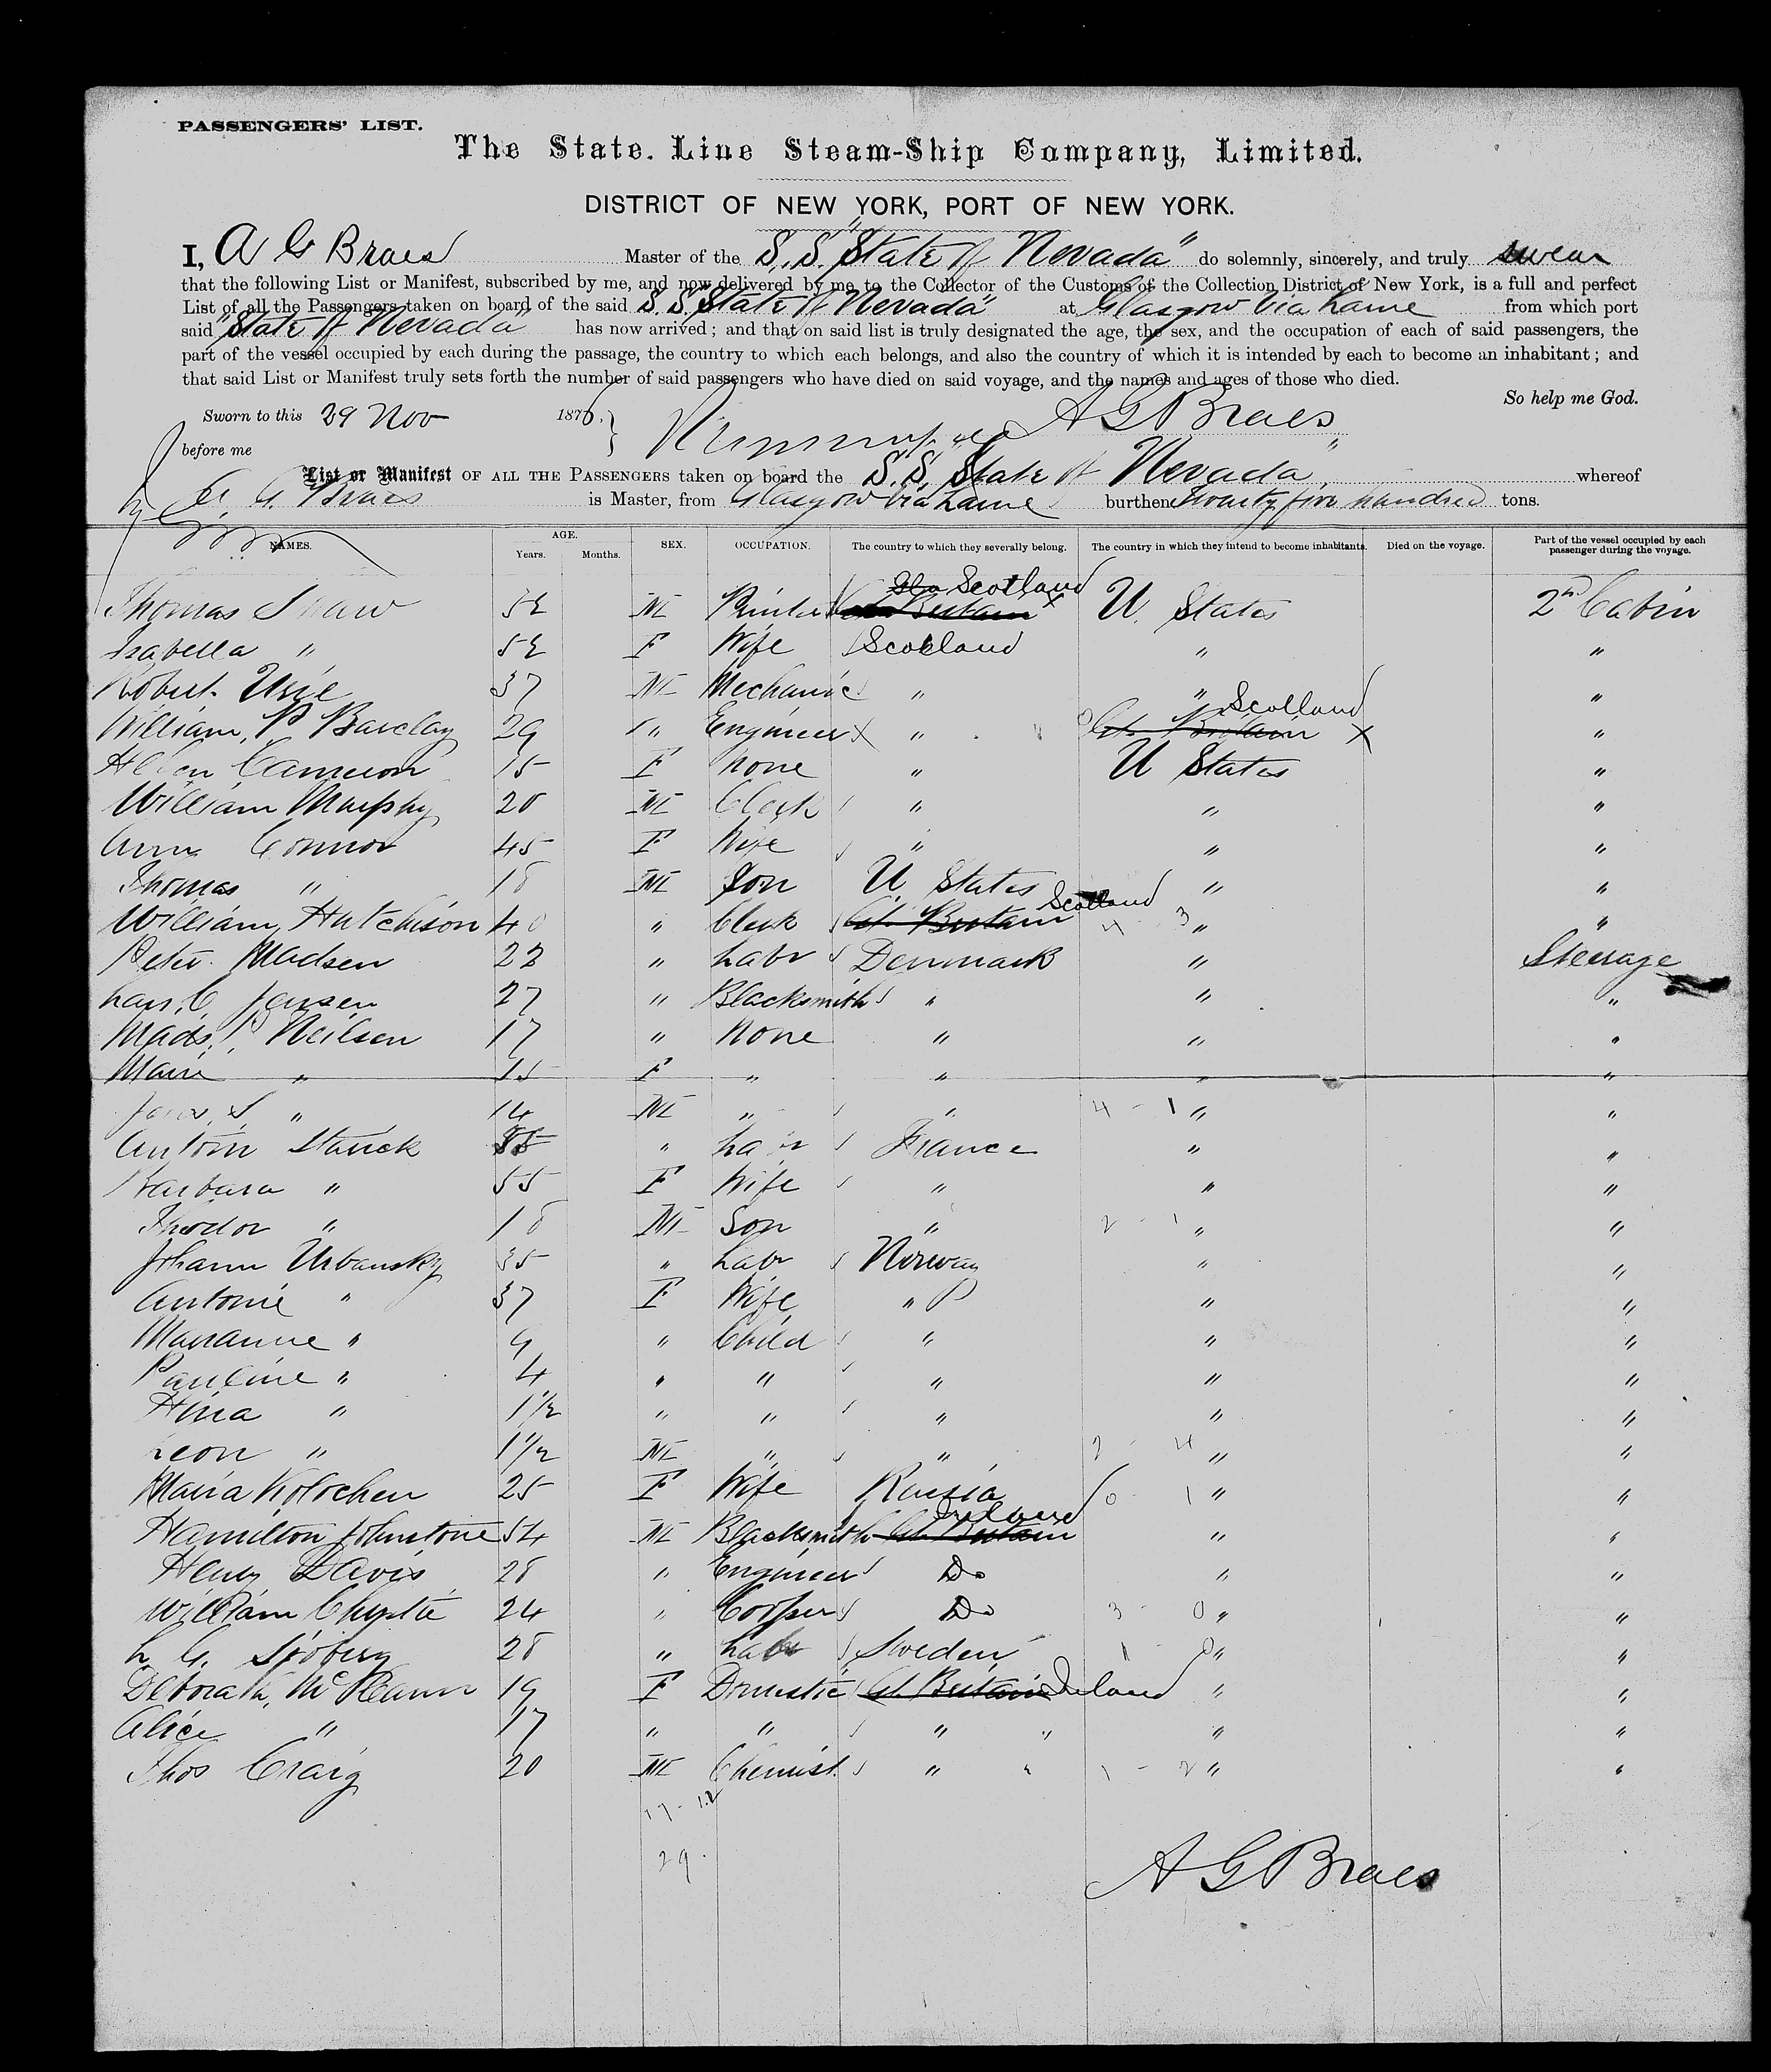 PASSENGERS' LIST.
The State Line Steam-Ship Company, Limited.
DISTRICT OF NEW YORK, PORT OF NEW YORK.
I, A G Braes Master of the S.S. "State of Nevada" do solemnly, sincerely, and truly swear
that the following List or Manifest, subscribed by me, and now delivered by me, to the Collector of the Customs of the Collection District of New York, is a full and perfect
List of all the Passengers taken on board of the said S.S. State of Nevada" at Glasgow via Larne from which port
said "State of Nevada" has now arrived; and that on said list is truly designated the age, the sex, and the occupation of each of said passengers, the
part of the vessel occupied by each during the passage, the country to which each belongs, and also the country of which it is intended by each to become an inhabitant; and
that said List or Manifest truly sets forth the number of said passengers who have died on said voyage, and the names and ages of those who died.
So help me God.
Sworn to this 29 Nov 1876. A G Braes
before me
List or Manifest OF ALL THE PASSENGERS taken on board the S.S. State of Nevada" whereof
A. G. Braes is Master, from Glasgow via Larne burthen Twenty five hundred tons.
NAMES. AGE. Years. Months. SEX. OCCUPATION. The country to which they severally belong. The country in which they intend to become inhabitants. Died on the voyage. Part of the vessel occupied by each passenger during the voyage.
Thomas Shaw 52 M Printer Gt Britain Scotland U. States 2nd Cabin
Isabella " 52 F Wife Scotland " "
Robert Urie 37 M Mechanic " " "
William P Barclay 29 " Engineer " Gt. Britain Scotland "
Cameron 15 F None " U States "
William Murphy 20 M Clerk " " "
Ann Connor 45 F Wife " " "
Thomas " 18 M Son U States " "
William Hutchison 40 " Clerk Gt. Britain Scotland 4 - 3 " "
Peter Madsen 22 " Labr Denmark " Steerage
Lars C Jensen 27 " Blacksmith " " "
Mads P Neilsen 17 " None " " "
Marie " 15 F " " " "
Jens S " 14 M " " 4 - 1 " "
Antoin Stauck " Labr France " "
Barbara " 55 F Wife " " "
Thodor " 18 M Son " 2 - 1 " "
Johann Urbansky 35 " Labr Norway " "
Antonie " 37 F Wife " P " "
Marianne " 9 " Child " " "
Pauline " 4 " " " " "
" 1½ " " " " "
Leon " 1½ M " " 2 - 4 " "
Maria 25 F Wife Russia 0 - 1 " "
Hamilton Johnstone 54 M Blacksmith Gt Britain Ireland " "
Henry Davis 28 " Engineer Do " "
William Chrystie 24 " Cooper Do 3 - 0 " "
L G. Sjoberg 28 " Labr Sweden 1 - 0 " "
Deborah 19 F Domestic Gt. Britain Ireland " "
Alice " 17 " " " " " "
Thos Craig 20 M Chemist " " 1 - 2 " "
17 - 12
29.
A G Braes